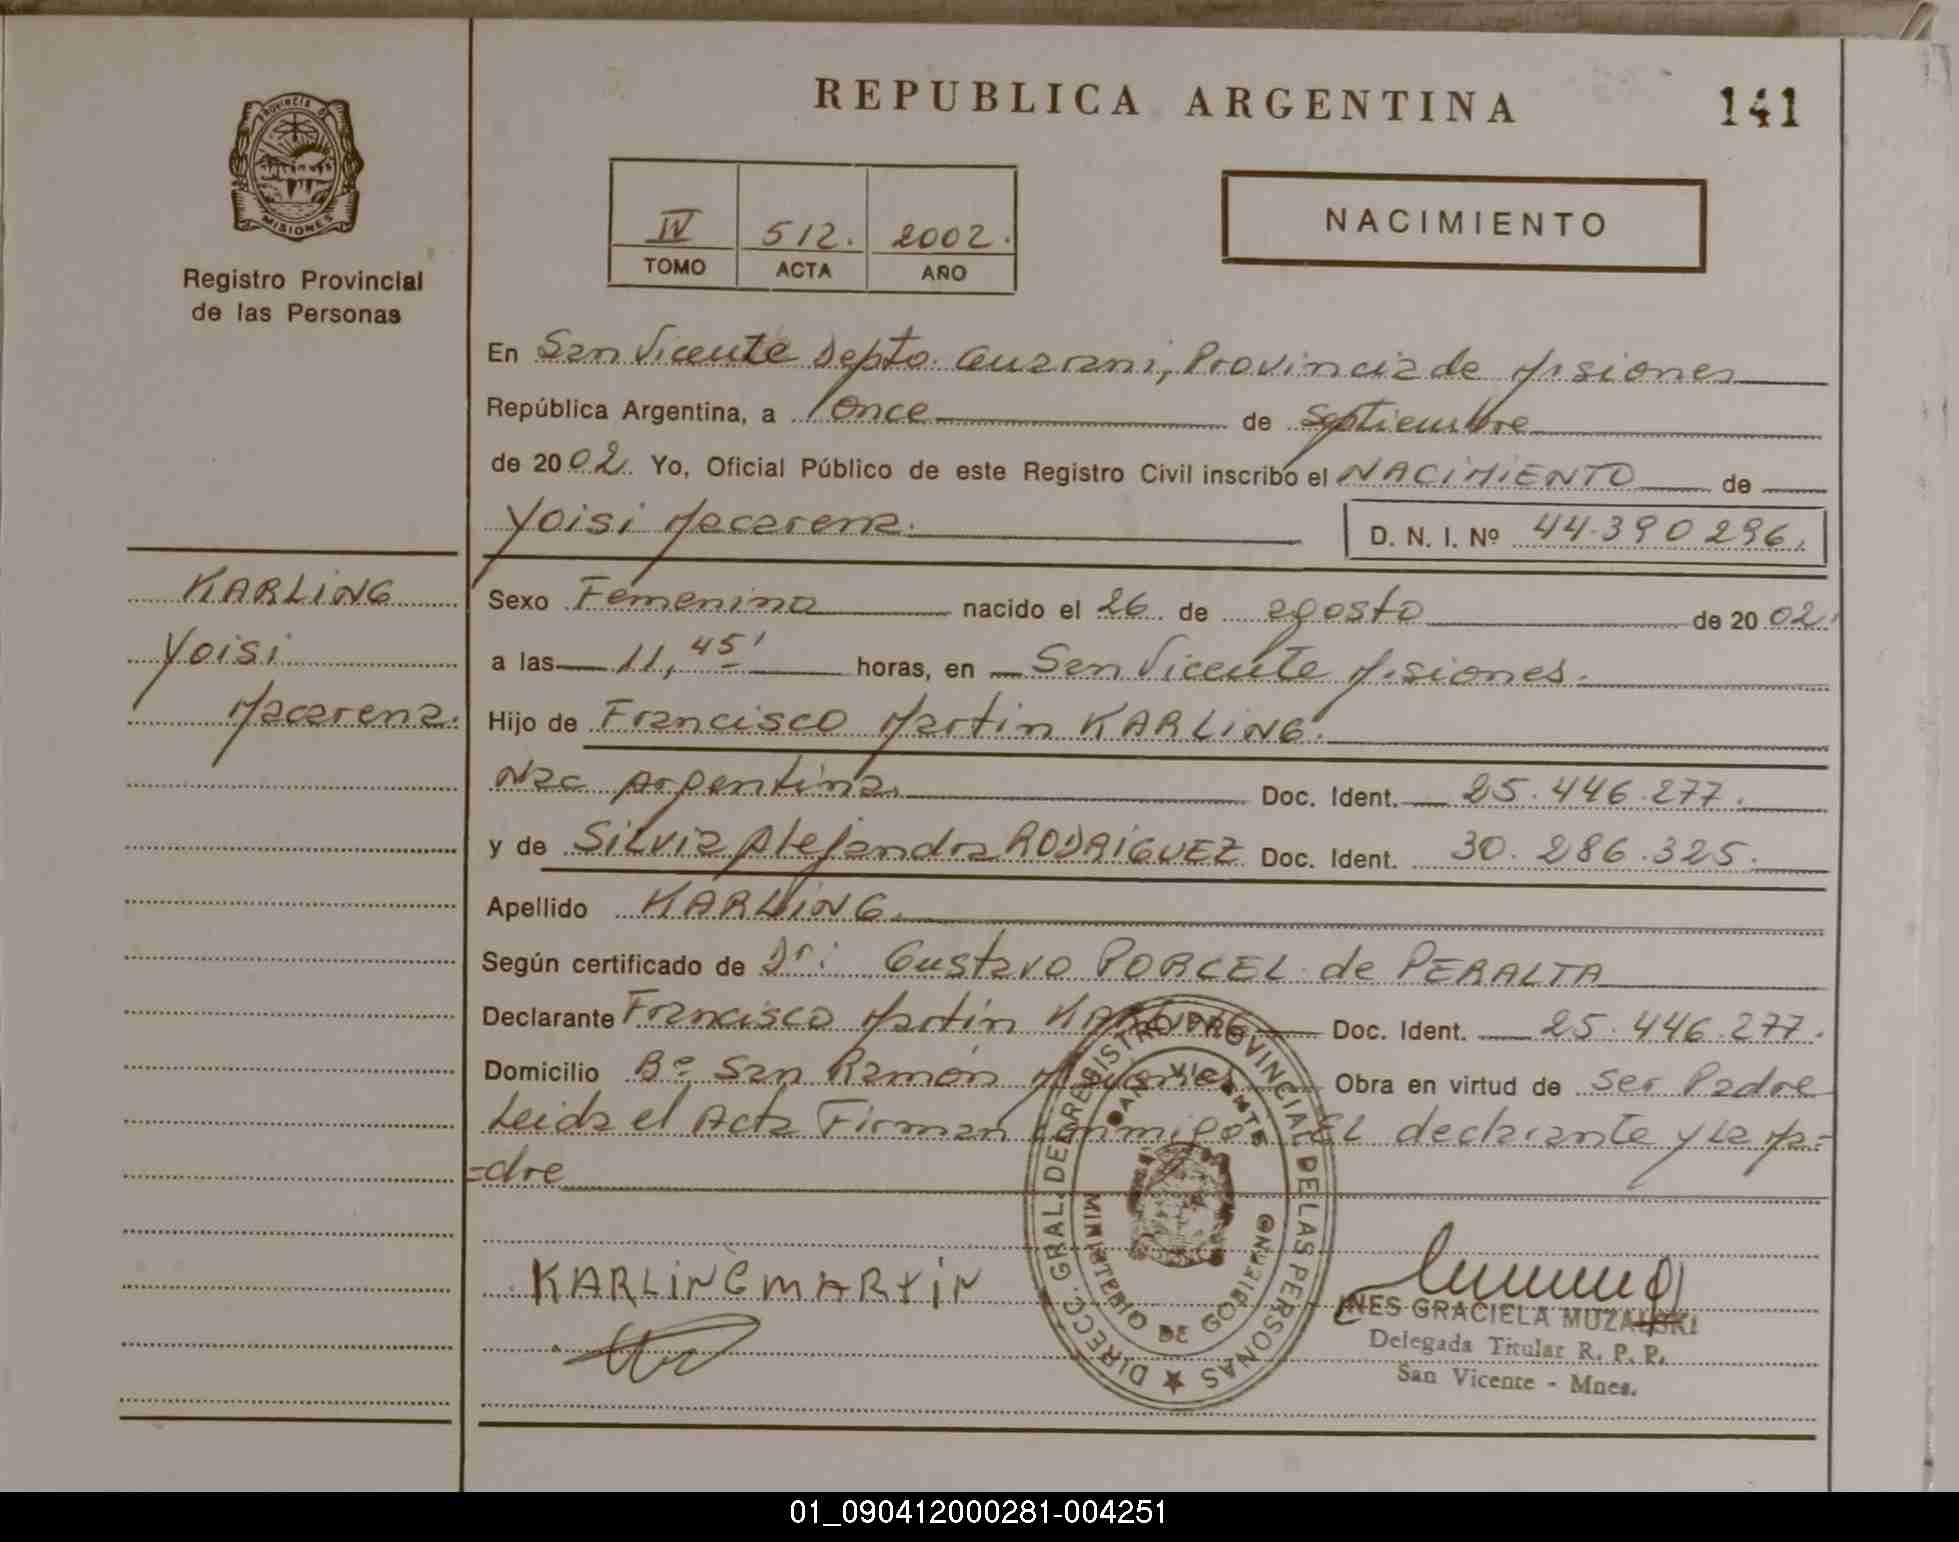 REPUBLICA ARGENTINA
141
PROVINCIA DE
MISIONES
Registro Provincial
de las Personas
IV 512. 2002.
TOMO ACTA AÑO
NACIMIENTO
En San Vicente Depto. Guarani, Provincia de Misiones
República Argentina, a Once de Septiembre
de 2002. Yo, Oficial Público de este Registro Civil inscribo el NACIMIENTO de
Yoisi Macarena. D. N. I. Nº 44.390296.
KARLING
Yoisi
Macarena.
Sexo Femenino nacido el 26 de agosto de 2002.
a las 11,45' horas, en San Vicente Misiones.
Hijo de Francisco Martin KARLING.
Nac Argentina. Doc. Ident. 25.446.277.
y de Silvia Alejandra RODRIGUEZ Doc. Ident. 30.286.325.
Apellido KARLING.
Según certificado de Dr: Gustavo PORCEL de PERALTA
Declarante Francisco Martín KARLING Doc. Ident. 25.446.277.
Domicilio Bº San Ramón Misiones Obra en virtud de ser Padre
Leida el Acta Firman conmigo El declarante y la Ma=
=dre
KARLING MARTIN
DIRECC. GRAL. DEL REGISTRO PROVINCIAL DE LAS PERSONAS
SAN VICENTE
MINISTERIO DE GOBIERNO
INES GRACIELA MUZALSKI
Delegada Titular R. P. P.
San Vicente - Mnes.
01_090412000281-004251